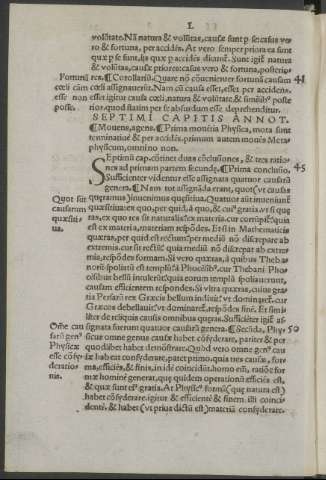 L
volūtate. Nā natura & volūtas, causæ sunt p se: casus ve
ro & fortuna, per accidēs. At vero semper priora ea sunt
quæ p se sunt, ijs quæ p accidēs
& volūtas, causæ priores: casus vero & fortuna, posterio
Fortunā
res. ¶ Corollariū. Quare nō cōuenienter fortunā causam
41
cœli cām
cœli assignauerīt. Nam cū causa esset, esset per accidens.
esse non
esset igitur causa cœli, natura & volūtate, & similib⁹ poste
posse.
rior. quod statim per se absurdum esse deprehenditur.
SEPTIMI CAPITIS ANNOT.
¶ Mouens, agens. ¶ Prima monētia Physica, mota sunt
terminatiōe & per accidēs. primum autem mouēs Meta
physicum, omnino non.
SEptimū cap. cōtinet duas cōclusiones, & tres ratio
nes ad primam partem secundæ. ¶ Prima conclusio.
45
Sufficienter videntur esse assignata quattuor causarū
genera. ¶ Nam tot assignāda erant, quot
Quot sūt
Quatuor aūt inueniunt
causarum
quæsitiua: ex quo, per quid, à quo, & cui⁹ gratia. vt si quę
quæsiti
ras, ex quo res sit naturalis: ex materia. cur corrūpit: quia
ua.
est ex materia, materiam respōdes. Et si in Mathematicis
quæras, per quid
extremis. cur sit rectū: quia mediū nō discrepat ab extre
mis, respōdes formam. Si vero quæras, à quibus Theba
norū spoliatū est templū: à Phocēsib⁹. cur Thebani Pho
cēsibus bellū intulerūt: quia eorum templū spoliauerunt,
causam efficientem respondes. Si vltra quæras, cuius gra
tia Persarū rex Græcis bellum indixit: vt dominaret. cur
Græcos debellauit: vt dominaret, respōdes finē. Et simi
liter de reliquis causis omnibus quæras. Sufficiēter igit̄ as
Oēm cau
signata fuerunt quatuor causarū genera. ¶ Secūda, Phy
50
sarū gen⁹
sicus omne genus causæ habet cōsyderare, pariter & per
Physicæ
quodlibet habet demōstrare. Quòd vero omne gen⁹ cau
esse cōsy
sæ habeat consyderare, patet primo. quia tres causæ, for
deratio
ma, efficiēs, & finis, in idē coincidūt. homo
nis.
mæ hominē generat, quę quidem operationū efficiēs est,
& quæ sunt ei⁹ gratia. At Physic⁹ formā (quę natura est)
habet cōsyderare. igitur & efficientē & finem. illi coinci
dentē. & habet (vt prius dictū est) materiā consyderare.